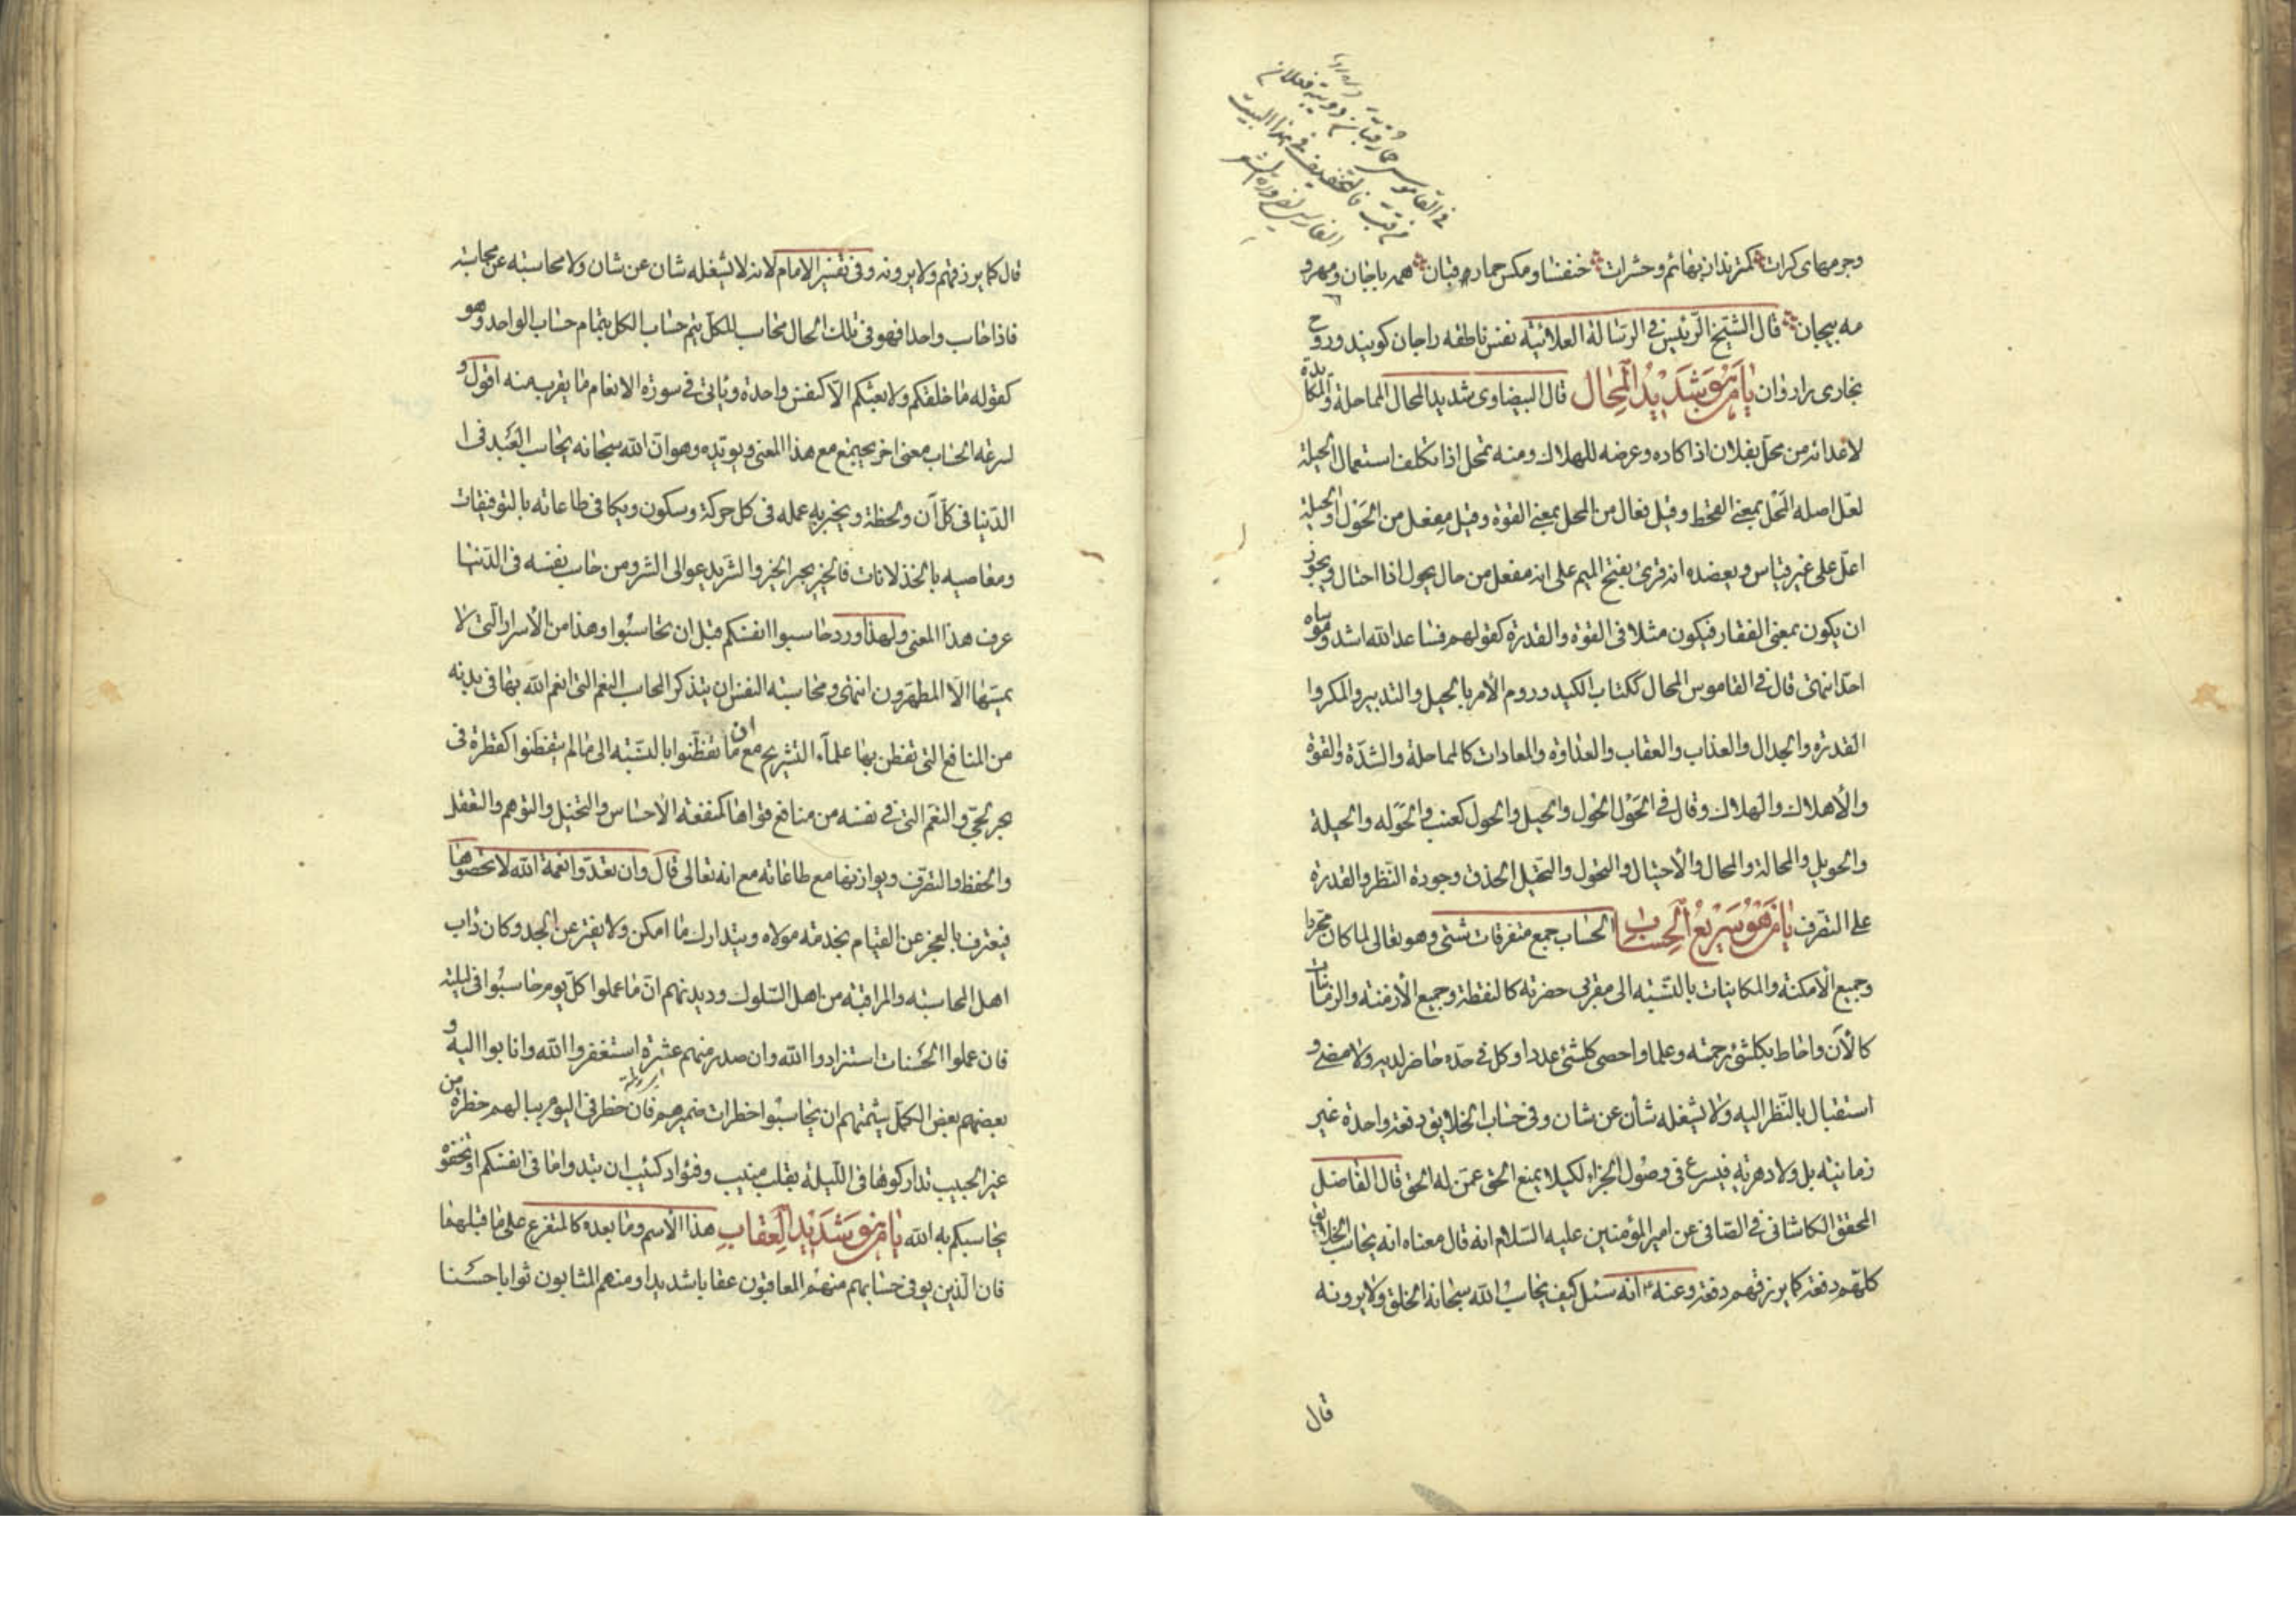 في القاموس حمار قبان دويبة فعلان
من قب فالتخفيف في هذا البيت
الفارسي لضرورة الشعر
وجرمهاى كرات كمترند از بهائم وحشرات خنفسا ومكس حمار قبان همه باجان ومهر و
مه بيجان قال الشيخ الرئيس في الرسالة العلائية نفس ناطقه را جان كويند وروح
بخارى را روان يا من هو شديد المحال قال البيضاوى شديد المحال المماحلة والمكايدة
لاعدائه من محل بفلان اذا كاده وعرضه للهلاك ومنه تمحل اذا تكلف استعمال الحيلة
لعل اصله المحل بمعنى القحط وقيل فعال من المحل بمعنى القوة وقيل مفعل من الحول او الحيلة
اعل على غير قياس ويعضده انه قرئ بفتح الميم على انه مفعل من حال يحول اذا احتال ويجوز
ان يكون بمعنى الفقار فيكون مثلا في القوة والقدرة كقولهم فساعد الله اشد وموساه
احد انتهى قال في القاموس المحال ككتاب الكيد وروم الأمر بالحيل والتدبير والمكر وا
القدره والجدال والعذاب والعقاب والعداوه والمعادات كالمماحلة والشدّة والقوة
والأهلاك والهلاك وقال في الحول الحول والحيل والحول كعنب والحوله والحيلة
والحويل والمحالة والمحال والأحتيال والتحول والتحيل الحذق وجودة النّظر والقدرة
على التصّرف يا من هو سريع الحساب الحساب جمع متفرقات شتى وهو تعالى لما كان مجردا
وجميع الأمكنة والمكانيات بالنسّبة الى مقربى حضرته كالنقطة وجميع الأزمنة والزمانيات
كالآن واحاط بكلشئ رحمته وعلما واحصى كلشئ عددا وكل في حدّه حاضر لديه ولا مضى و
استقبال بالنّظر اليه ولا يشغله شأن عن شان وفى حساب الخلايق دفعة واحدة غير
زمانية بل ولا دهرية فيسرع فى وصول الجزاء لكيلا يمنع الحق عمن له الحق قال الفاضل
المحقق الكاشانى في الصّافى عن امير المؤمنين عليه السّلام انه قال معناه انه يحاسب الخلايق
كلهم دفعة كما يرزقهم دفعة وعنه ع انه سئل كيف يحاسب الله سبحانه الخلق ولا يرونه
قال
قال كما يرزقهم ولا يرونه وفى تفسير الامام لانه لا يشغله شان عن شان ولا محاسبته عن محاسبة
فاذا حاسب واحدا فهو فى تلك الحال محاسب للكل يتم حساب الكل بتمام حساب الواحد وهو
كقوله ما خلقكم ولا بعثكم الّا كنفس واحدة وياتى فى سورة الانعام ما يقرب منه اقول و
لسرعة الحساب معنى اخر يجتمع مع هذا المعنى ويؤيّده وهو انّ الله سبحانه يحاسب العبد فى ا
الدّنيا فى كل آن ولحظة ويخبر به عمله فى كل حركة وسكون ويكافى طاعاته بالتوفيقات
ومعاصيه بالخذلانات فالخير يجر الخير والشر يدعو الى الشر ومن حاسب نفسه فى الدّنيا
عرف هذا المعنى ولهذا ورد حاسبوا انفسكم قبل ان تحاسبوا وهذا من الأسرار الّتى لا
يمسّها الّا المطهّرون انتهى ومحاسبة النفس ان يتذكر المحاسب النعم التى انعم الله بها فى بدنه
من المنافع التى تفطن بها علماء التشريح مع ان ما تفطّنوا بالنسّبة الى ما لم يتفطنوا كقطرة فى
بحر لجّى والنعم التى في نفسه من منافع قواها كمنفعة الأحساس والتخيل والتوهم والتعقل
والحفظ والتصرّف ويوازنها مع طاعاته مع انه تعالى قال وان تعدّوا نعمة الله لا تحصوها
فيعترف بالعجز عن القيام بخدمة مولاه ويتدارك ما امكن ولا يفتر عن الجد وكان داب
اهل المحاسبة والمراقبة من اهل السّلوك وديدنهم انّ ما عملوا كلّ يوم حاسبوا فى ليلته
فان عملوا الحسنات استزادوا الله وان صدر منهم عثرة استغفروا الله وانابوا اليه و
بعضهم بعض الكمّل شيمتهم ان يحاسبوا خطرات ضميرهم فان خطر فى اليوم ببالهم خطرة من
غير الحبيب تداركوها فى اللّيلة بقلب منيب وفؤاد كئيب ان تبدوا ما فى انفسكم او تخفوه
يحاسبكم به الله يا من هو شديد العقاب هذا الأسم وما بعده كالمتفرع على ما قبلهما
فان الّذين يوفى حسابهم منهم المعاقبون عقابا شديدا ومنهم المثابون ثوابا حسنا